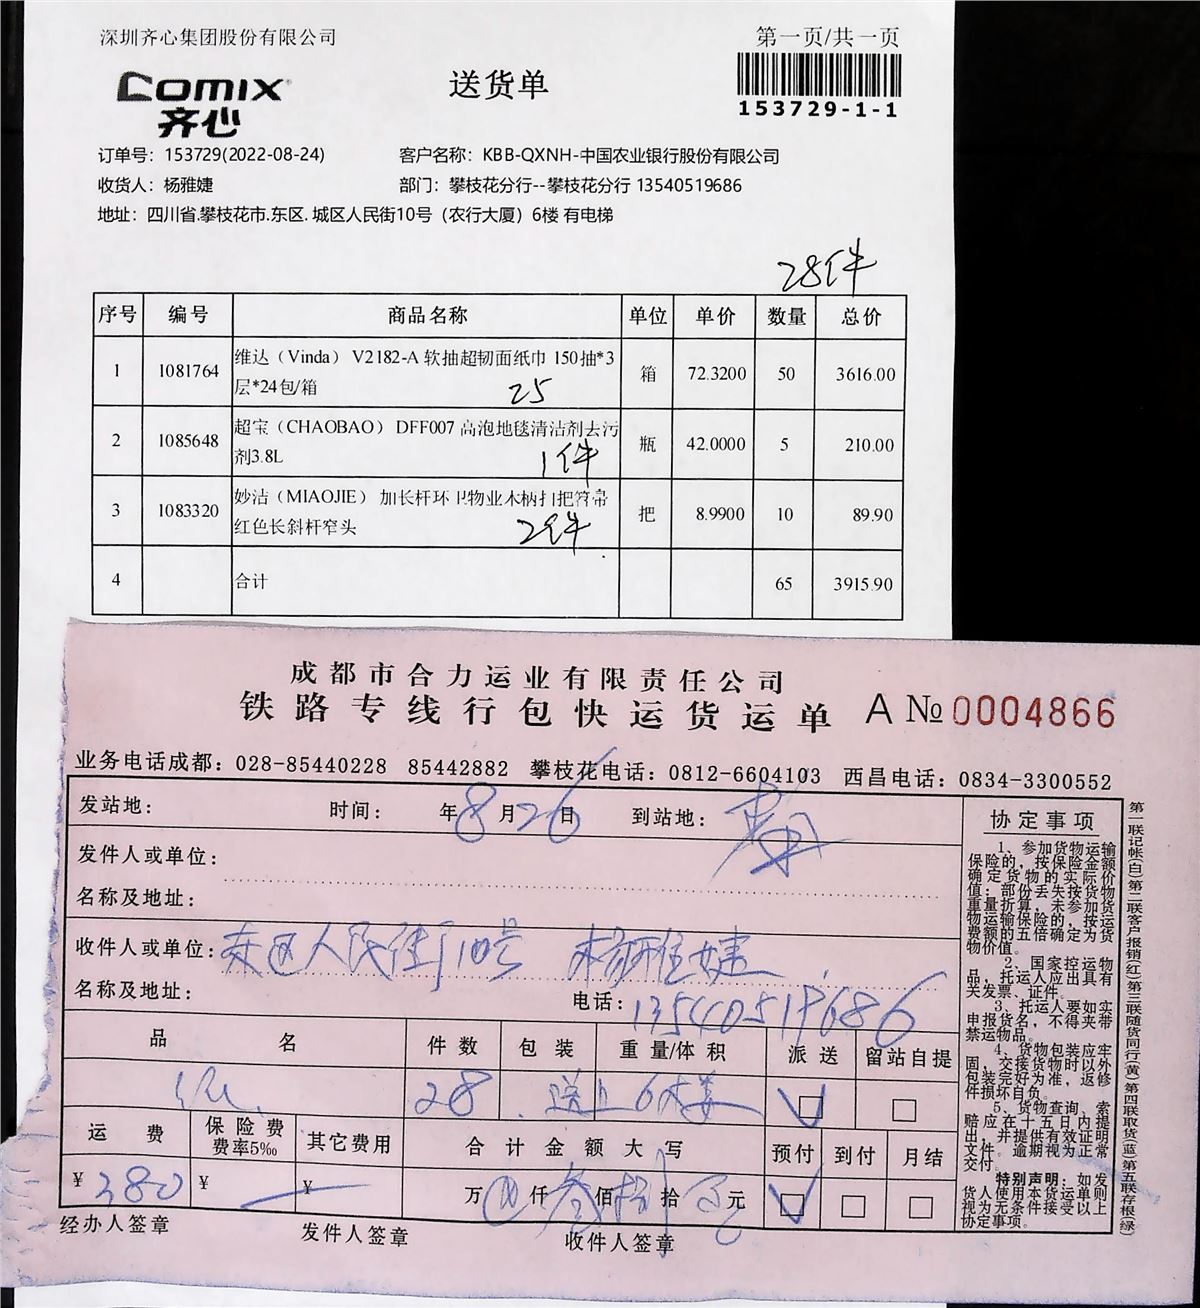 深圳齐心集团股份有限公司
第一页/共一页
COMIX
齐心
送货单
153729-1-1
订单号：153729(2022-08-24)
客户名称：KBB-QXNH-中国农业银行股份有限公司
收货人：杨雅婕
部门：攀枝花分行--攀枝花分行 13540519686
地址：四川省.攀枝花市.东区. 城区人民街10号（农行大厦）6楼 有电梯
28件
序号 编号 商品名称 单位 单价 数量 总价
1 1081764 维达（Vinda） V2182-A 软抽超韧面纸巾 150抽*3 箱 72.3200 50 3616.00
层*24包/箱
25
2 1085648 超宝（CHAOBAO） DFF007 高泡地毯清洁剂去污 瓶 42.0000 5 210.00
剂3.8L
1件
3 1083320 妙洁（MIAOJIE） 加长杆环卫物业木柄扫把笤帚 把 8.9900 10 89.90
红色长斜杆窄头
2件
4 合计 65 3915.90
成都市合力运业有限责任公司
铁路专线行包快运货运单 A № 0004866
业务电话成都：028-85440228 85442882 攀枝花电话：0812-6604103 西昌电话：0834-3300552
发站地： 时间： 年8月26日 到站地：
发件人或单位：
名称及地址：
收件人或单位：东区人民街10号 杨雅婕
名称及地址： 电话：13540519686
品名 件数 包装 重量/体积 派送 留站自提
28 送上6楼
运费 保险费 费率5‰ 其它费用 合计金额大写 预付 到付 月结
¥ 380 ¥ ¥ 万 仟叁佰捌拾 元
经办人签章 发件人签章 收件人签章
协定事项
1、参加货物运输
保险的，按保险金额
确定货物的实际价
值；部份丢失按货物
重量折算，未参加货
物运输保险的，按运
费额的五倍确定为货
物价值。
2、国家控运物
品，托运人应出具有
关发票、证件。
3、托运人要如实
申报货名，不得夹带
禁运物品。
4、货物包装应牢
固，交接货物时以外
包装完好为准，返修
件损坏自负。
5、货物查询、索
赔应在十五日内提
出，并提供有效证明
文件。逾期视为正常
交付。
特别声明：如发
货人使用本货运单则
视为无条件接受以上
协定事项。
第一联记帐(白)第二联客户报销(红)第三联随货同行(黄)第四联取货(蓝)第五联存根(绿)